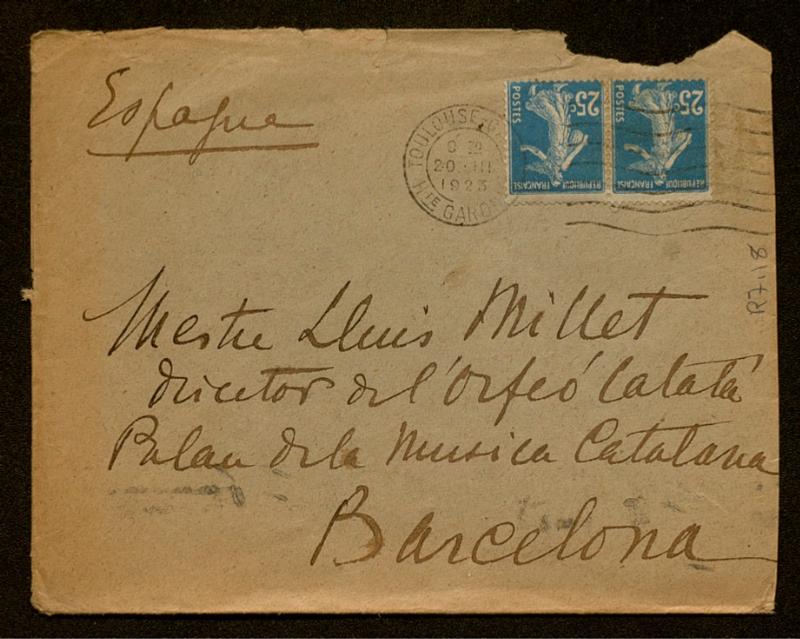 Espagne
TOULOUSE-GARE
20 · III
1923
HTE GARONNE
25c
POSTES
REPUBLIQUE FRANCAISE
25c
POSTES
REPUBLIQUE FRANCAISE
Mestre Lluis Millet
director de l'Orfeó Catalá
Palau de la Musica Catalana
Barcelona